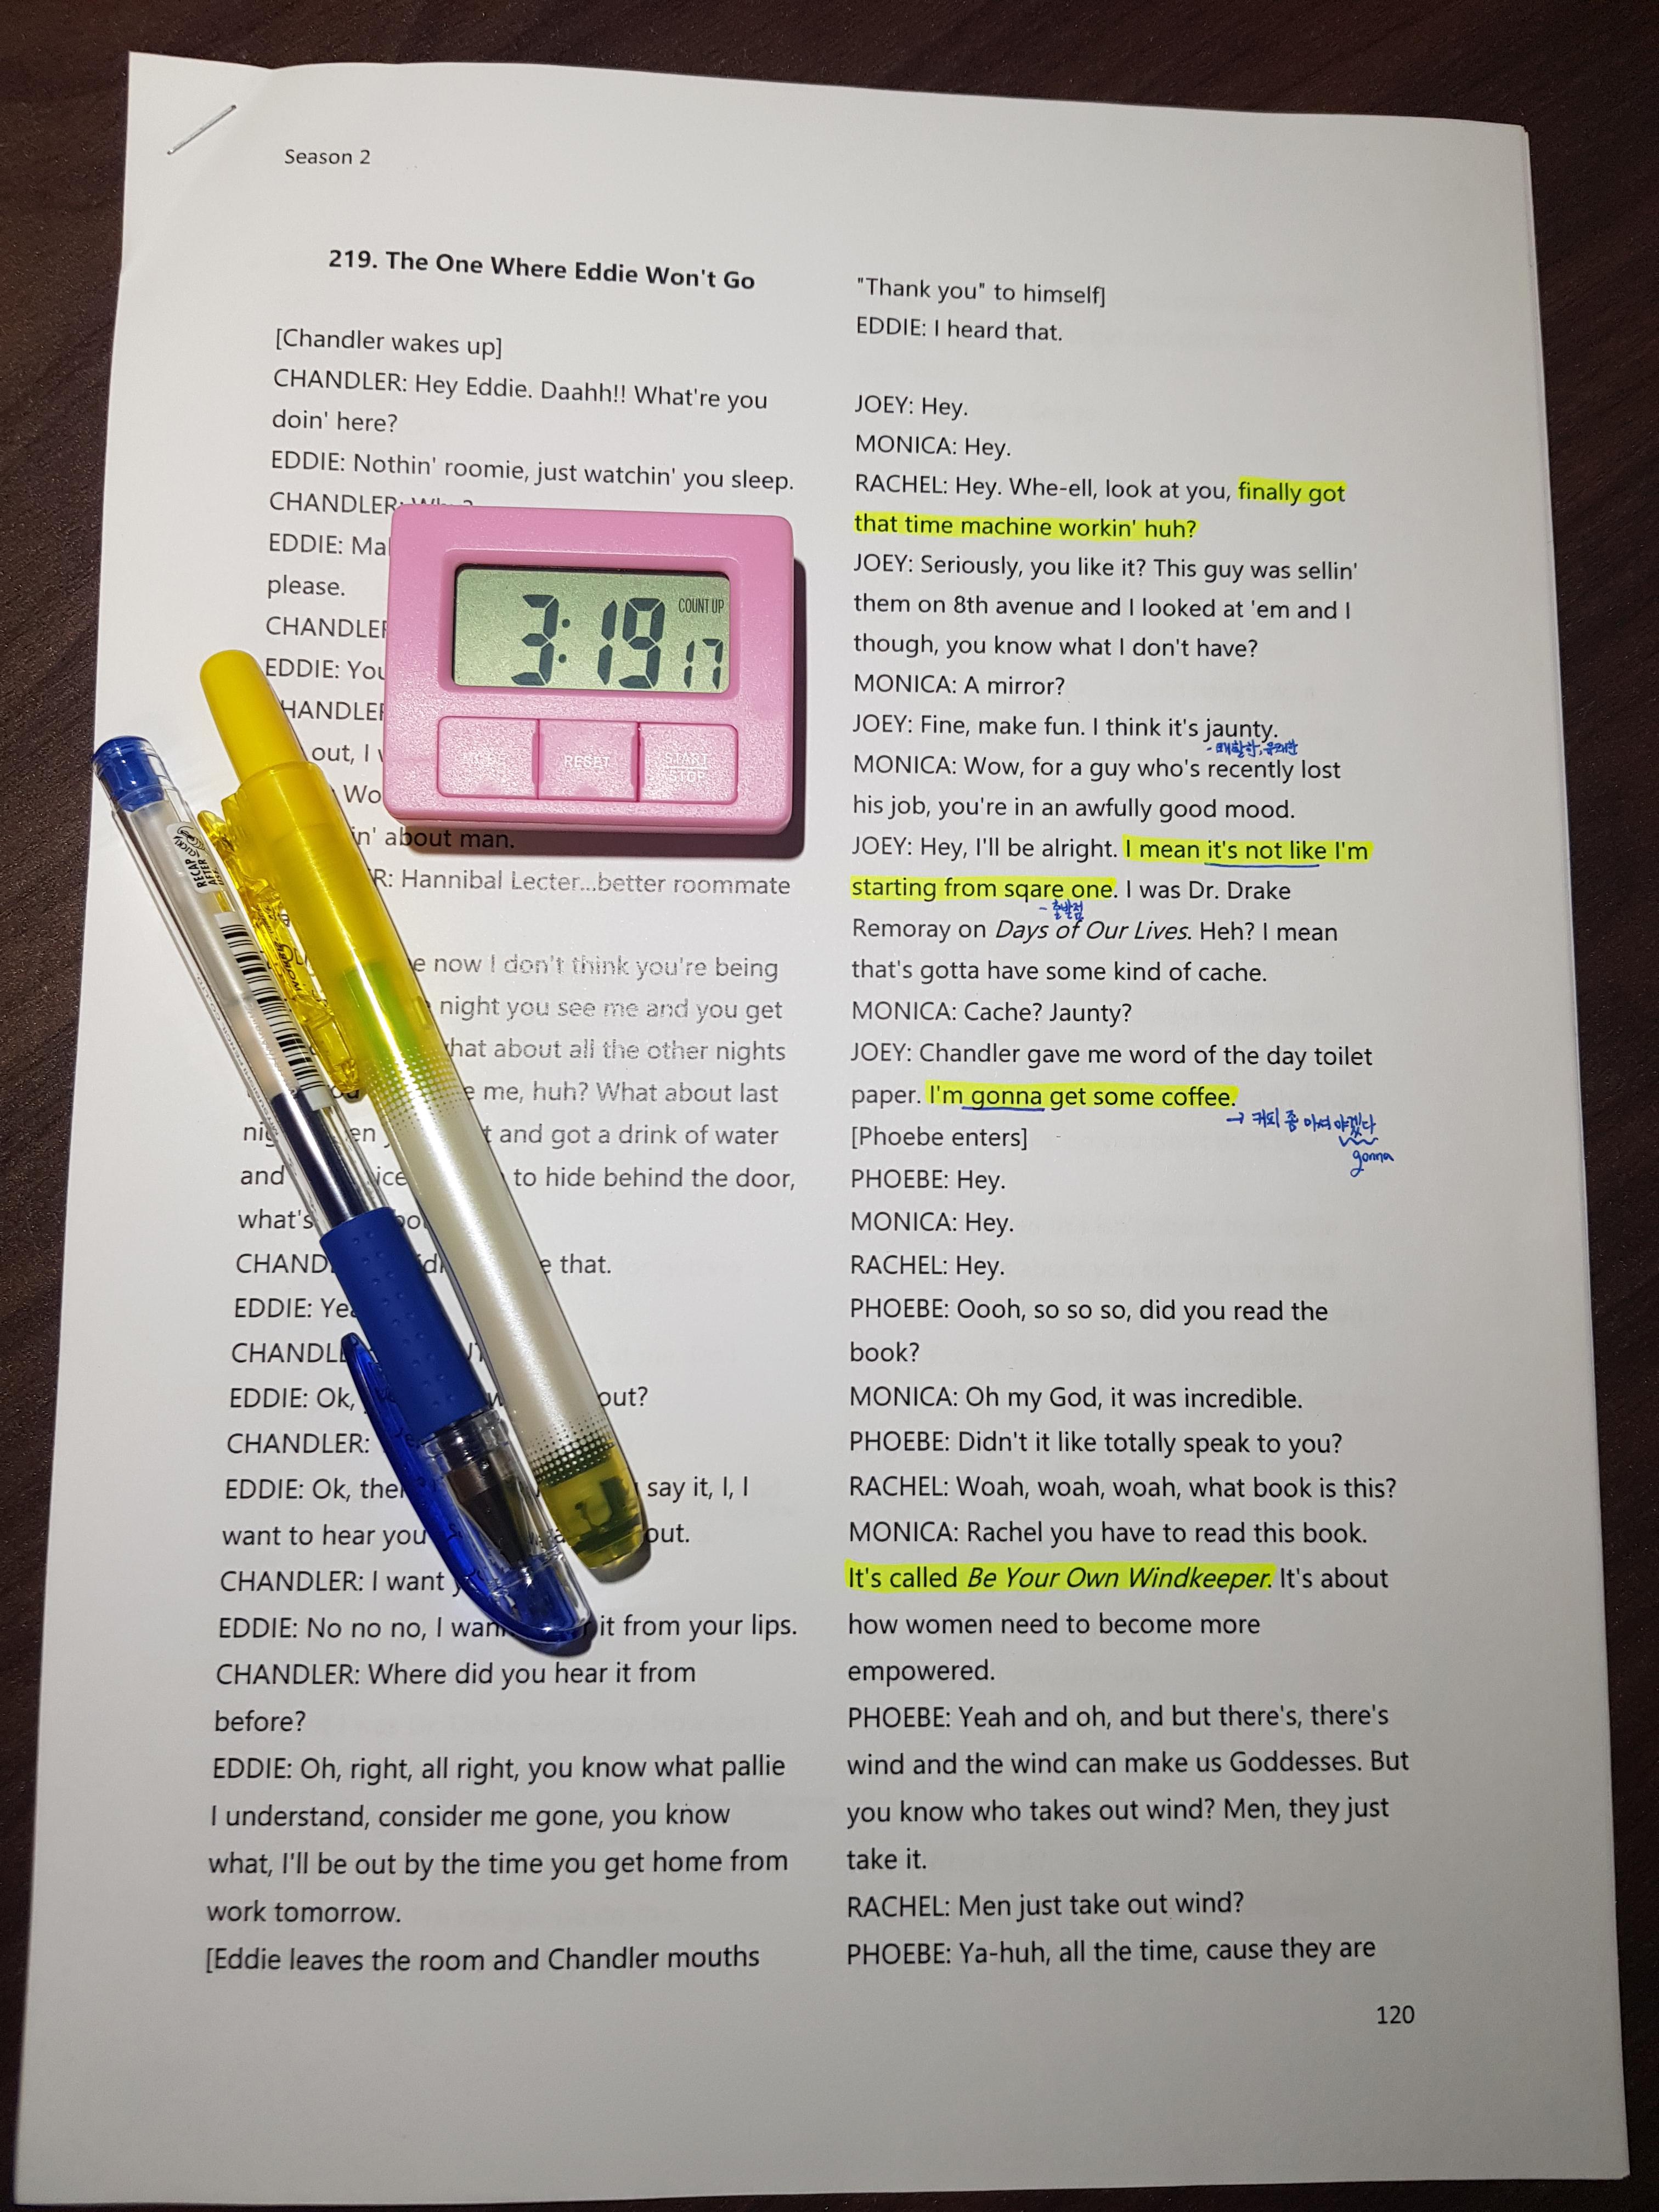 Season 2
219. The One Where Eddie Won't Go
[Chandler wakes up]
CHANDLER: Hey Eddie. Daahh!! What're you
doin' here?
EDDIE: Nothin' roomie, just watchin' you sleep.
CHANDLER: Why?
EDDIE:
please.
EDDIE: You
out, I
in' about man.
R: Hannibal Lecter...better roommate
now I don't think you're being
night you see me and you get
what about all the other nights
me, huh? What about last
t and got a drink of water
and to hide behind the door,
what's
that.
EDDIE:
EDDIE: Ok, out?
CHANDLER:
EDDIE: Ok, say it, I, I
want to hear you out.
CHANDLER: I want
EDDIE: No no no, I it from your lips.
CHANDLER: Where did you hear it from
before?
EDDIE: Oh, right, all right, you know what pallie
I understand, consider me gone, you know
what, I'll be out by the time you get home from
work tomorrow.
[Eddie leaves the room and Chandler mouths
"Thank you" to himself]
EDDIE: I heard that.
JOEY: Hey.
MONICA: Hey.
RACHEL: Hey. Whe-ell, look at you, finally got
that time machine workin' huh?
JOEY: Seriously, you like it? This guy was sellin'
them on 8th avenue and I looked at 'em and I
though, you know what I don't have?
MONICA: A mirror?
JOEY: Fine, make fun. I think it's jaunty.
- 쾌활한, 유쾌한
MONICA: Wow, for a guy who's recently lost
his job, you're in an awfully good mood.
JOEY: Hey, I'll be alright. I mean it's not like I'm
starting from sqare one. I was Dr. Drake
- 출발점
Remoray on Days of Our Lives. Heh? I mean
that's gotta have some kind of cache.
MONICA: Cache? Jaunty?
JOEY: Chandler gave me word of the day toilet
paper. I'm gonna get some coffee.
→ 커피 좀 마셔야겠다
gonna
[Phoebe enters]
PHOEBE: Hey.
MONICA: Hey.
RACHEL: Hey.
PHOEBE: Oooh, so so so, did you read the
book?
MONICA: Oh my God, it was incredible.
PHOEBE: Didn't it like totally speak to you?
RACHEL: Woah, woah, woah, what book is this?
MONICA: Rachel you have to read this book.
It's called Be Your Own Windkeeper. It's about
how women need to become more
empowered.
PHOEBE: Yeah and oh, and but there's, there's
wind and the wind can make us Goddesses. But
you know who takes out wind? Men, they just
take it.
RACHEL: Men just take out wind?
PHOEBE: Ya-huh, all the time, cause they are
120
COUNT UP
3:19 17
MODE RESET START
STOP
RECAP
AFTER
USE